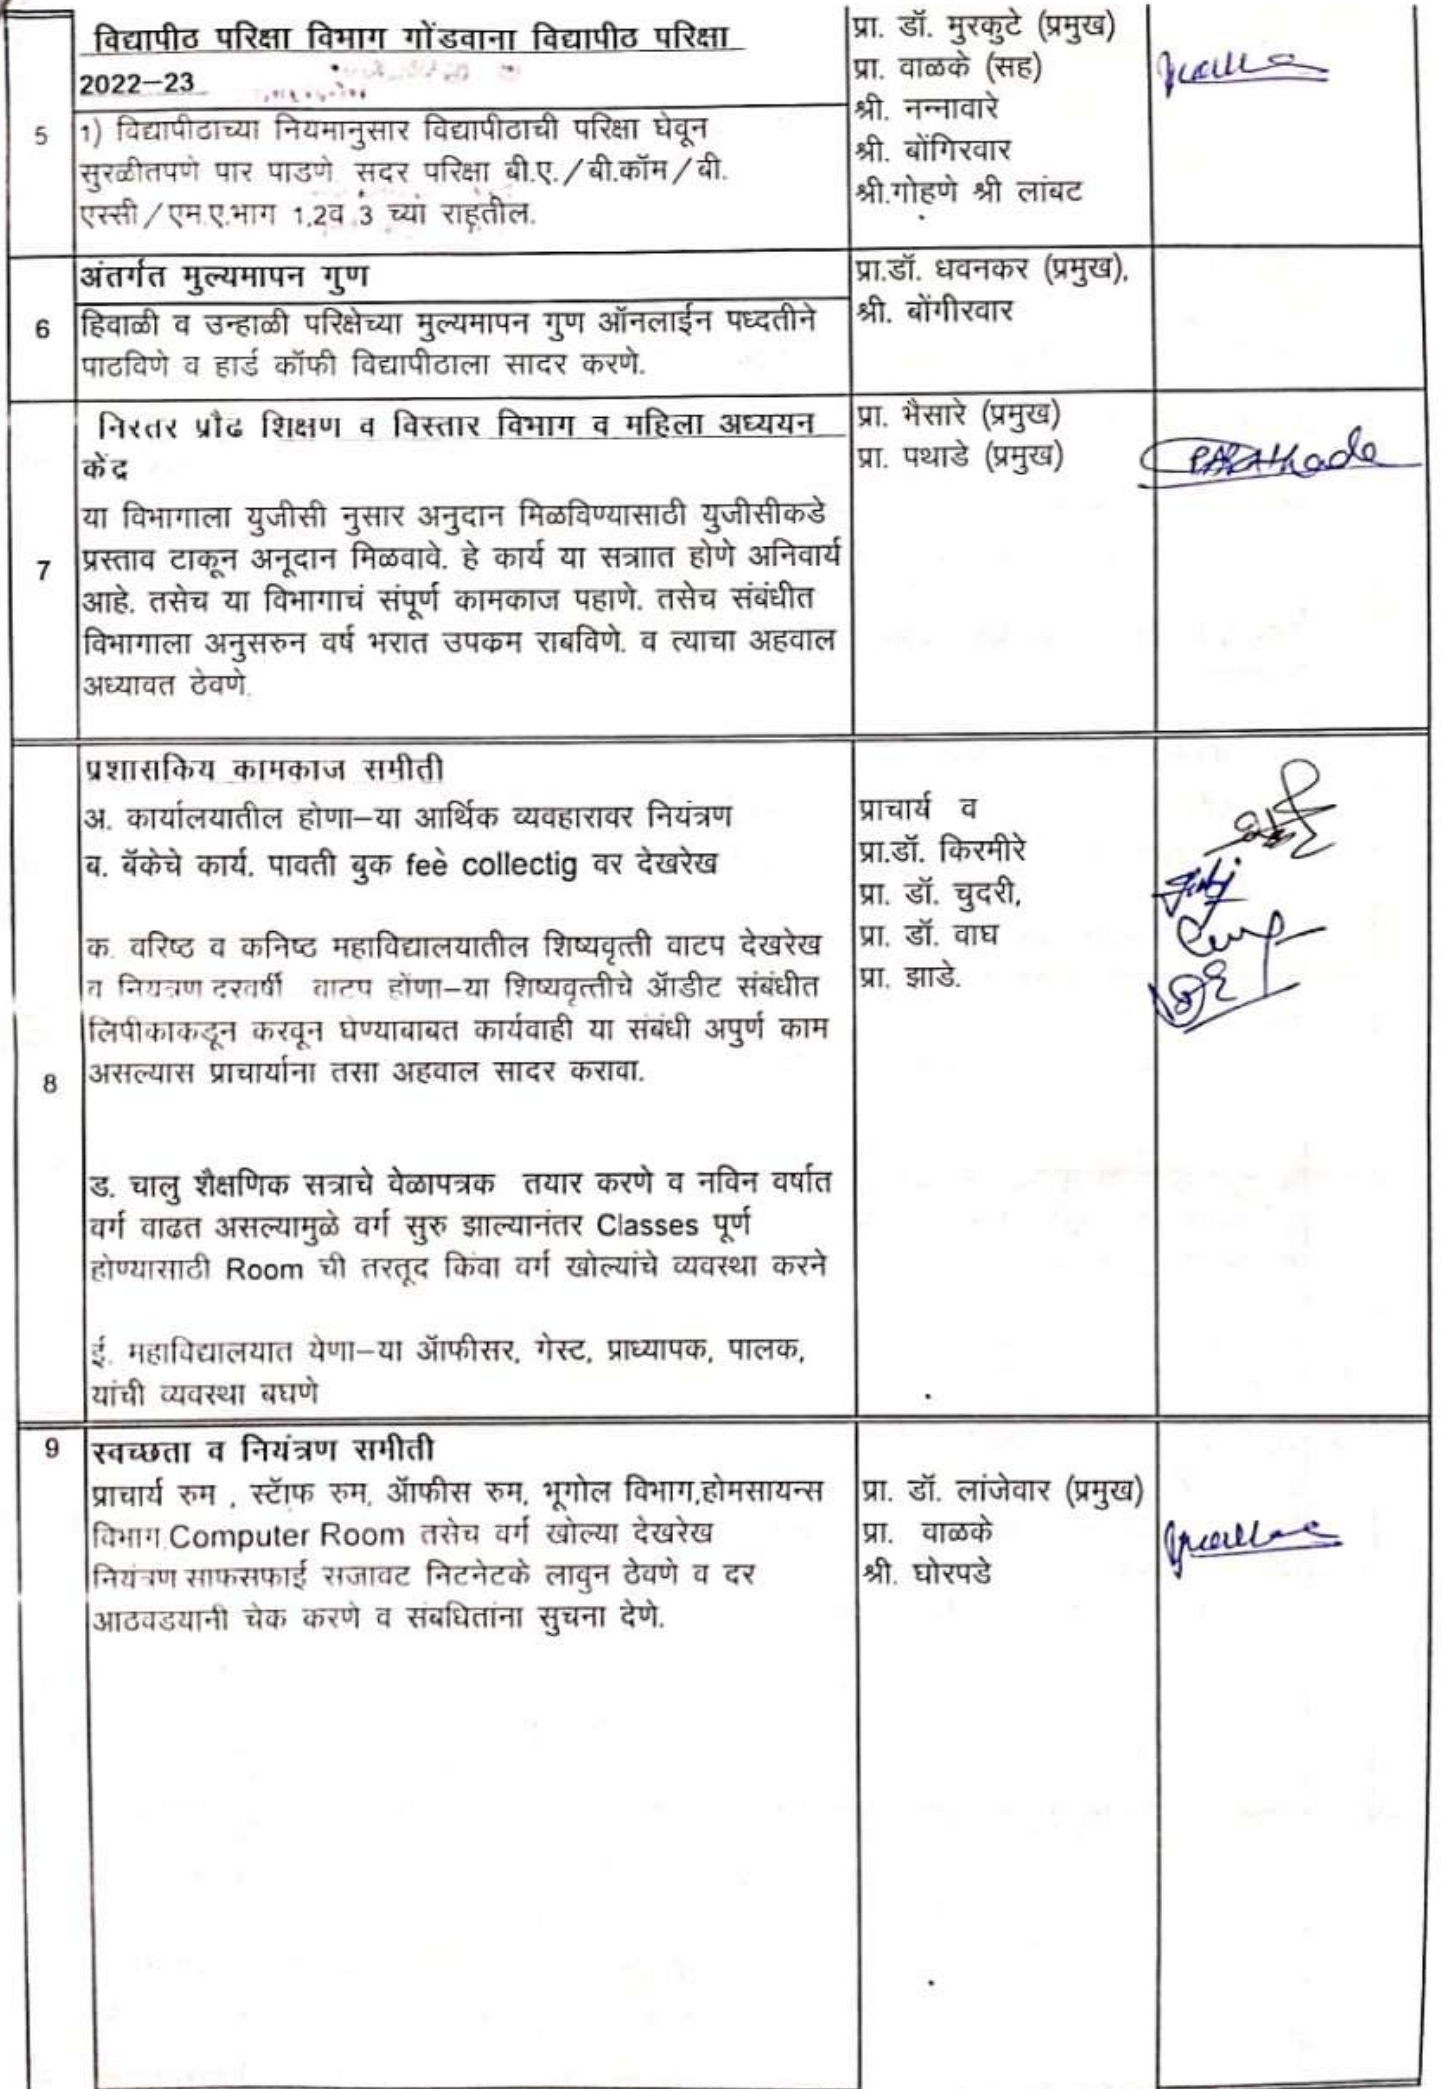 विद्यापीठ परिक्षा विभाग गोंडवाना विद्यापीठ परिक्षा
2022–23
5
1) विद्यापीठाच्या नियमानुसार विद्यापीठाची परिक्षा घेवून
सुरळीतपणे पार पाडणे. सदर परिक्षा बी.ए./बी.कॉम/बी.
एस्सी/एम.ए.भाग 1,2व 3 च्या राहतील.
प्रा. डॉ. मुरकुटे (प्रमुख)
प्रा. वाळके (सह)
श्री. नन्नावारे
श्री. बोंगिरवार
श्री.गोहणे श्री लांबट
अंतर्गत मुल्यमापन गुण
6
हिवाळी व उन्हाळी परिक्षेच्या मुल्यमापन गुण ऑनलाईन पध्दतीने
पाठविणे व हार्ड कॉफी विद्यापीठाला सादर करणे.
प्रा.डॉ. धवनकर (प्रमुख),
श्री. बोंगीरवार
निरतर प्रौढ शिक्षण व विस्तार विभाग व महिला अध्ययन
केंद्र
7
या विभागाला युजीसी नुसार अनुदान मिळविण्यासाठी युजीसीकडे
प्रस्ताव टाकून अनूदान मिळवावे. हे कार्य या सत्राात होणे अनिवार्य
आहे. तसेच या विभागाचं संपूर्ण कामकाज पहाणे. तसेच संबंधीत
विभागाला अनुसरुन वर्ष भरात उपकम राबविणे. व त्याचा अहवाल
अध्यावत ठेवणे.
प्रा. भैसारे (प्रमुख)
प्रा. पथाडे (प्रमुख)
प्रशासकिय कामकाज समीती
अ. कार्यालयातील होणा–या आर्थिक व्यवहारावर नियंत्रण
ब. बॅकेचे कार्य. पावती बुक fee collectig वर देखरेख
क. वरिष्ट व कनिष्ट महाविद्यालयातील शिष्यवृत्ती वाटप देखरेख
व नियत्रण दरवर्षी वाटप होंणा–या शिष्यवृत्तीचे ऑडीट संबंधीत
लिपीकाकडून करवून घेण्याबाबत कार्यवाही या संबंधी अपुर्ण काम
असल्यास प्राचार्याना तसा अहवाल सादर करावा.
8
ड. चालु शैक्षणिक सत्राचे वेळापत्रक तयार करणे व नविन वर्षात
वर्ग वाढत असल्यामुळे वर्ग सुरु झाल्यानंतर Classes पूर्ण
होण्यासाठी Room ची तरतूद किंवा वर्ग खोल्यांचे व्यवस्था करने
ई. महाविद्यालयात येणा–या ऑफीसर, गेस्ट, प्राध्यापक, पालक,
यांची व्यवस्था बघणे
प्राचार्य व
प्रा.डॉ. किरमीरे
प्रा. डॉ. चुदरी,
प्रा. डॉ. वाघ
प्रा. झाडे.
9
स्वच्छता व नियंत्रण समीती
प्राचार्य रुम , स्टॉफ रुम, ऑफीस रुम, भूगोल विभाग,होमसायन्स
विभाग Computer Room तसेच वर्ग खोल्या देखरेख
नियंत्रण साफसफाई सजावट निटनेटके लावुन ठेवणे व दर
आठवडयानी चेक करणे व संबधितांना सुचना देणे.
प्रा. डॉ. लांजेवार (प्रमुख)
प्रा. वाळके
श्री. घोरपडे